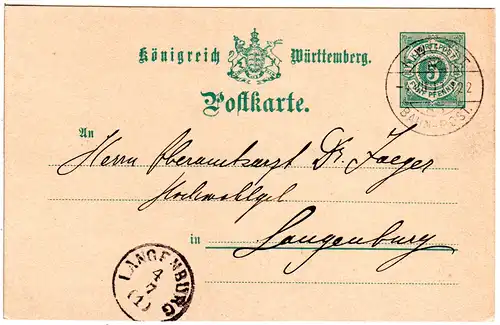 Königreich Württemberg.
Postkarte.
5
FÜNF PFENNIG
BAHNPOST.
An
Herrn Oberamtsarzt Dr. Jaeger
Hochwohlgeb
in Langenburg
LANGENBURG
4
7
(1)